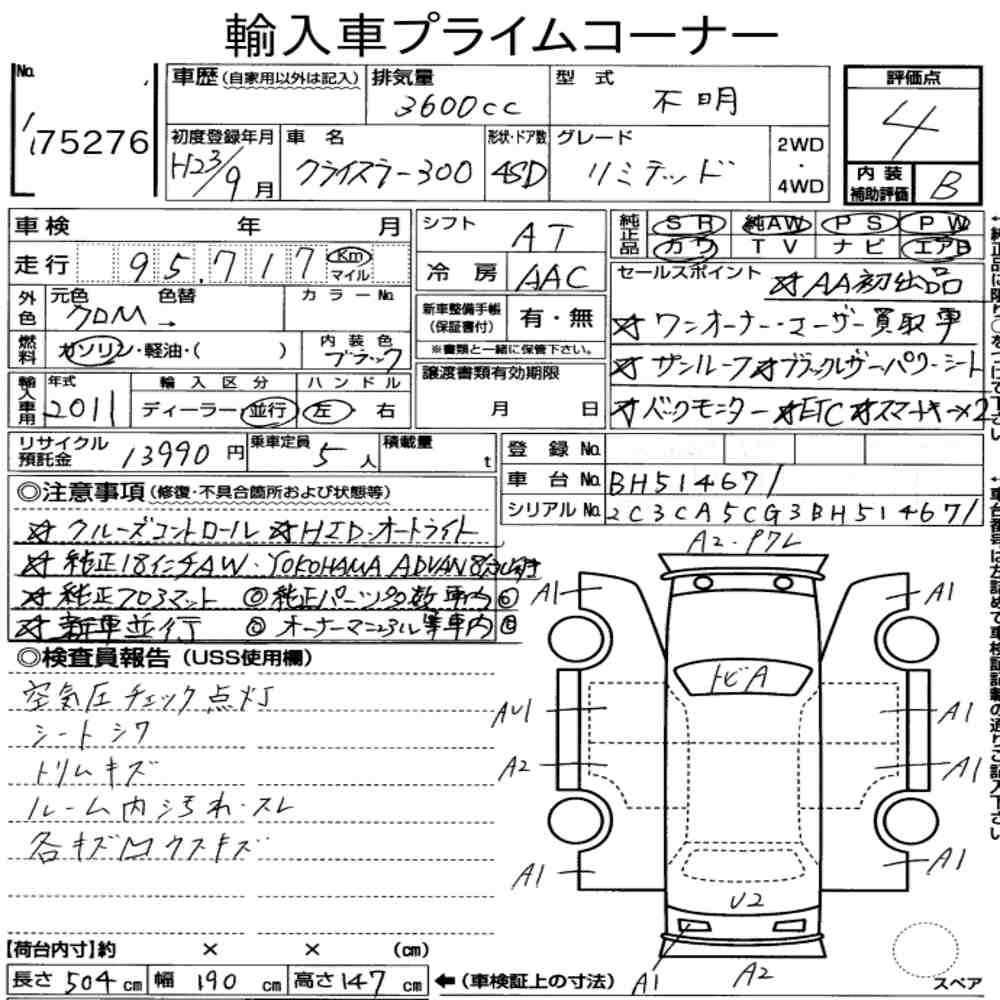 輸入車プライムコーナー
No.
175276
車歴 (自家用以外は記入)
排気量
3600cc
型式
不明
評価点
4
初度登録年月
H23/9月
車名
クライスラー300
形状・ドア数
4SD
グレード
リミテッド
2WD
・
4WD
内装
補助評価
B
車検 年 月
走行 95,717 Km
マイル
シフト
AT
冷房
AAC
純正品
SR 純AW PS PW
カワ TV ナビ エアB
外色
元色 色替
クロM→
カラーNo.
新車整備手帳
(保証書付)
有・無
※書類と一緒に保管下さい。
セールスポイント
☆AA初出品
☆ワンオーナー・ユーザー買取車
☆サンルーフ☆ブラックレザーパワーシート
☆バックモニター ☆ETC☆スマートキー×2
燃料
ガソリン・軽油・( )
内装色
ブラック
譲渡書類有効期限
月 日
輸入車用
年式
2011
輸入区分
ディーラー・並行
ハンドル
左・右
リサイクル
預託金
13990円
乗車定員
5人
積載量
t
登録No.
車台No. BH514671
シリアルNo. 2C3CA5CG3BH514671
◎注意事項 (修復・不具合箇所および状態等)
☆クルーズコントロール ☆HID・オートライト
☆純正18インチAW・YOKOHAMA ADVAN 8分山付
☆純正フロアマット ◎純正パーツ多数車内◎
☆新車並行 ◎オーナーマニュアル等車内◎
◎検査員報告 (USS使用欄)
空気圧チェック点灯
シートシワ
トリムキズ
ルーム内汚れ・スレ
各キズ凹ウスキズ
A2・P7レ
A1
A1
トビA
AU1
A1
A2
A1
A1
A1
U2
A1
A2
スペア
【荷台内寸】約 × × (cm)
長さ 504 cm 幅 190 cm 高さ 147 cm
←(車検証上の寸法)